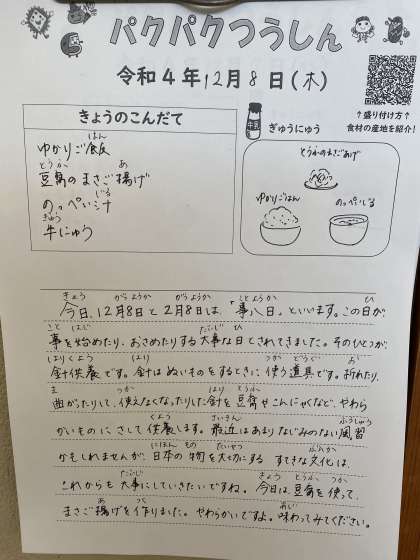 パクパクつうしん
令和4年12月8日(木)
きょうのこんだて
ゆかりご飯
はん
豆腐のまさご揚げ
とうふ あ
のっぺい汁
じる
牛にゅう
ぎゅう
牛乳
ぎゅうにゅう
↑盛り付け方↑
食材の産地を紹介!
とうふのまさごあげ
ゆかりごはん
のっぺいじる
きょう がつようか がつようか ことようか ひ
今日、12月8日と2月8日は、「事八日」といいます。この日が、
こと はじ たいじ ひ
事を始めたり、おさめたりする大事な日とされてきました。そのひとつが、
はりくよう はり つか どうぐ お
針供養です。針はぬいものをするときに、使う道具です。折れたり、
ま つか はり とうふ
曲がったりして、使えなくなったりした針を豆腐やこんにゃくなど、やわら
くよう さいきん ふうしゅう
かいものにさして供養します。最近はあまりなじみのない風習
にほん もの たいせつ ぶんか
かもしれませんが、日本の物を大切にするすてきな文化は、
だいじ きょう とうふ つか
これからも大事にしていきたいですね。今日は豆腐を使って、
あ つく あじ
まさご揚げを作りました。やわらかいですよ。味わってみてください。